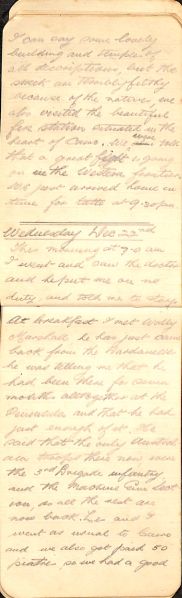 I can say some lovely
building and temples of
all descriptions, but the
streets are terribly filthy
because of the natives we
also visited the beautiful
fire station situated in the
heart of Cairo. We were told
that a great fight is going
on in the Western frontier
We just arrived home in
time for tattoo at 9.30 pm
Wednesday Dec 22nd
This morning at 7.0 am
I went and saw the doctor
and he put me on no
duty and told me to stay
At breakfast I met Wally
Marshall he has just came
back from the Dardanelles
he was telling me that he
had been there for seven
months alltogether at the
Peninsula and that he had
just enough of it. He
said that the only Austral
ian troops there now were
the 3rd Brigade infantry
and the Machine Gun Sect
ion, as all the rest are
now back. Les and I
went as usual to Cairo
and we also got paid 50
piastre so we had a good